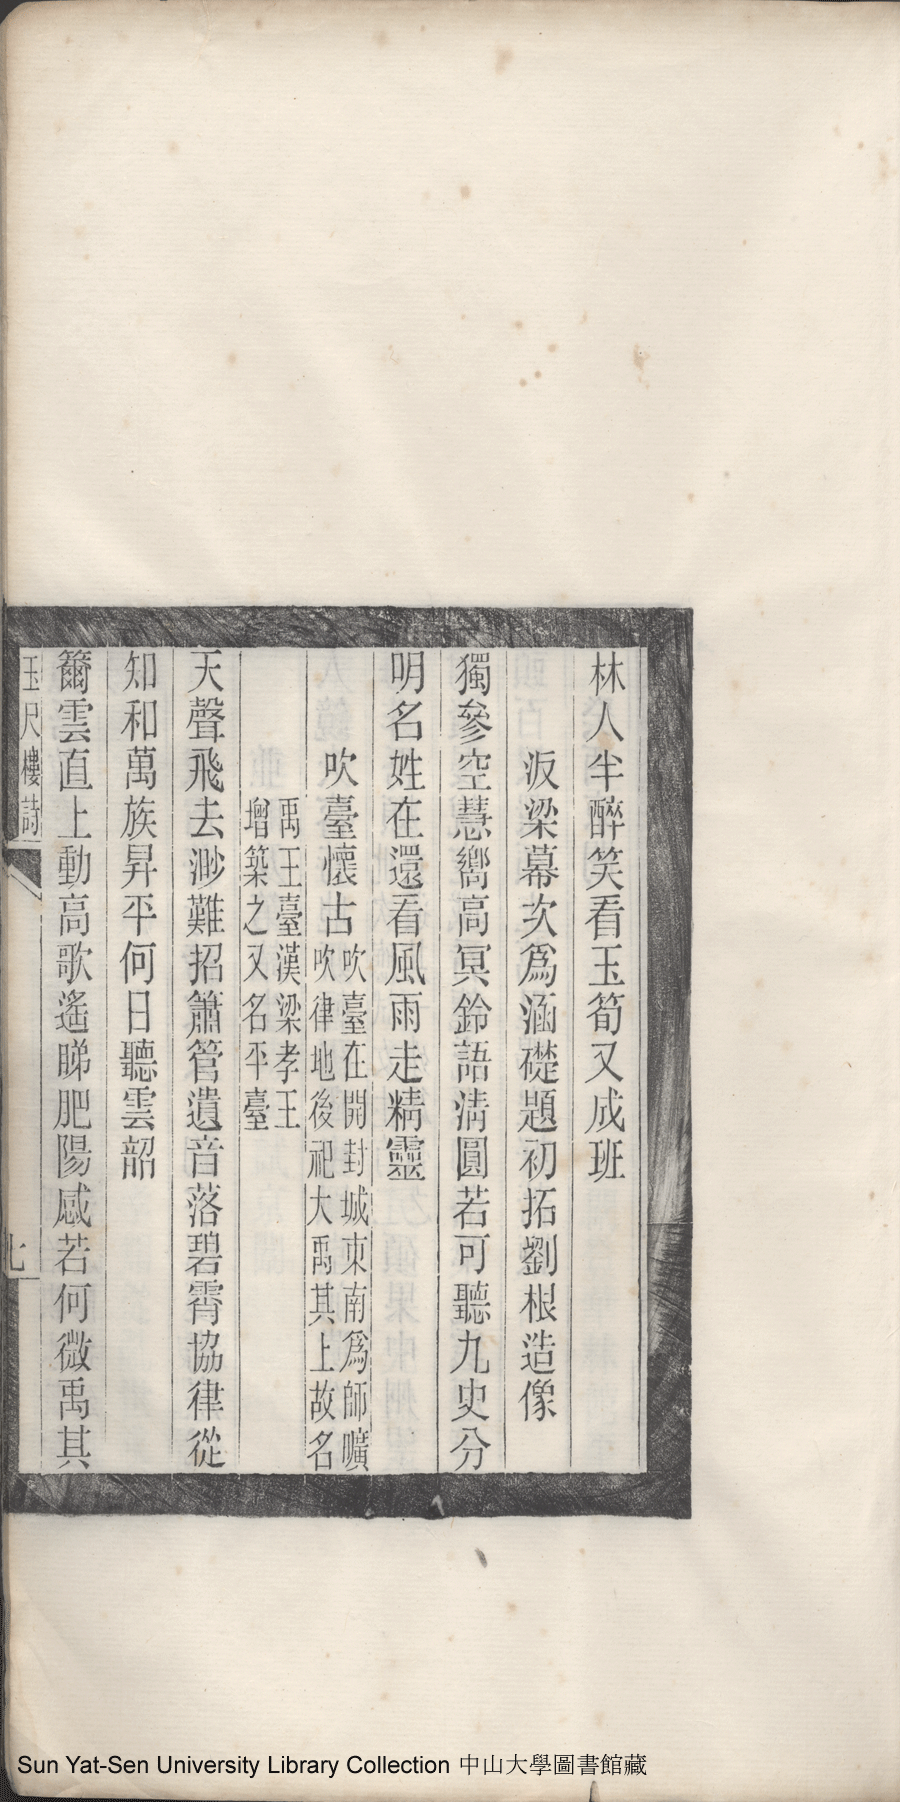 林人半醉笑看玉筍又成班
汳梁幕次爲涵礎題初拓劉根造像
獨參空慧嚮高冥鈴語淸圓若可聽九史分
明名姓在還看風雨走精靈
吹臺懷古吹臺在開封城東南爲師曠
吹律地後祀大禹其上故名
禹王臺漢梁孝王
增築之又名平臺
天聲飛去渺難招簫管遺音落碧霄協律從
知和萬族昇平何日聽雲韶
籋雲直上動高歌遙睇肥陽感若何微禹其
玉尺樓詩
七
Sun Yat-Sen University Library Collection 中山大學圖書館藏